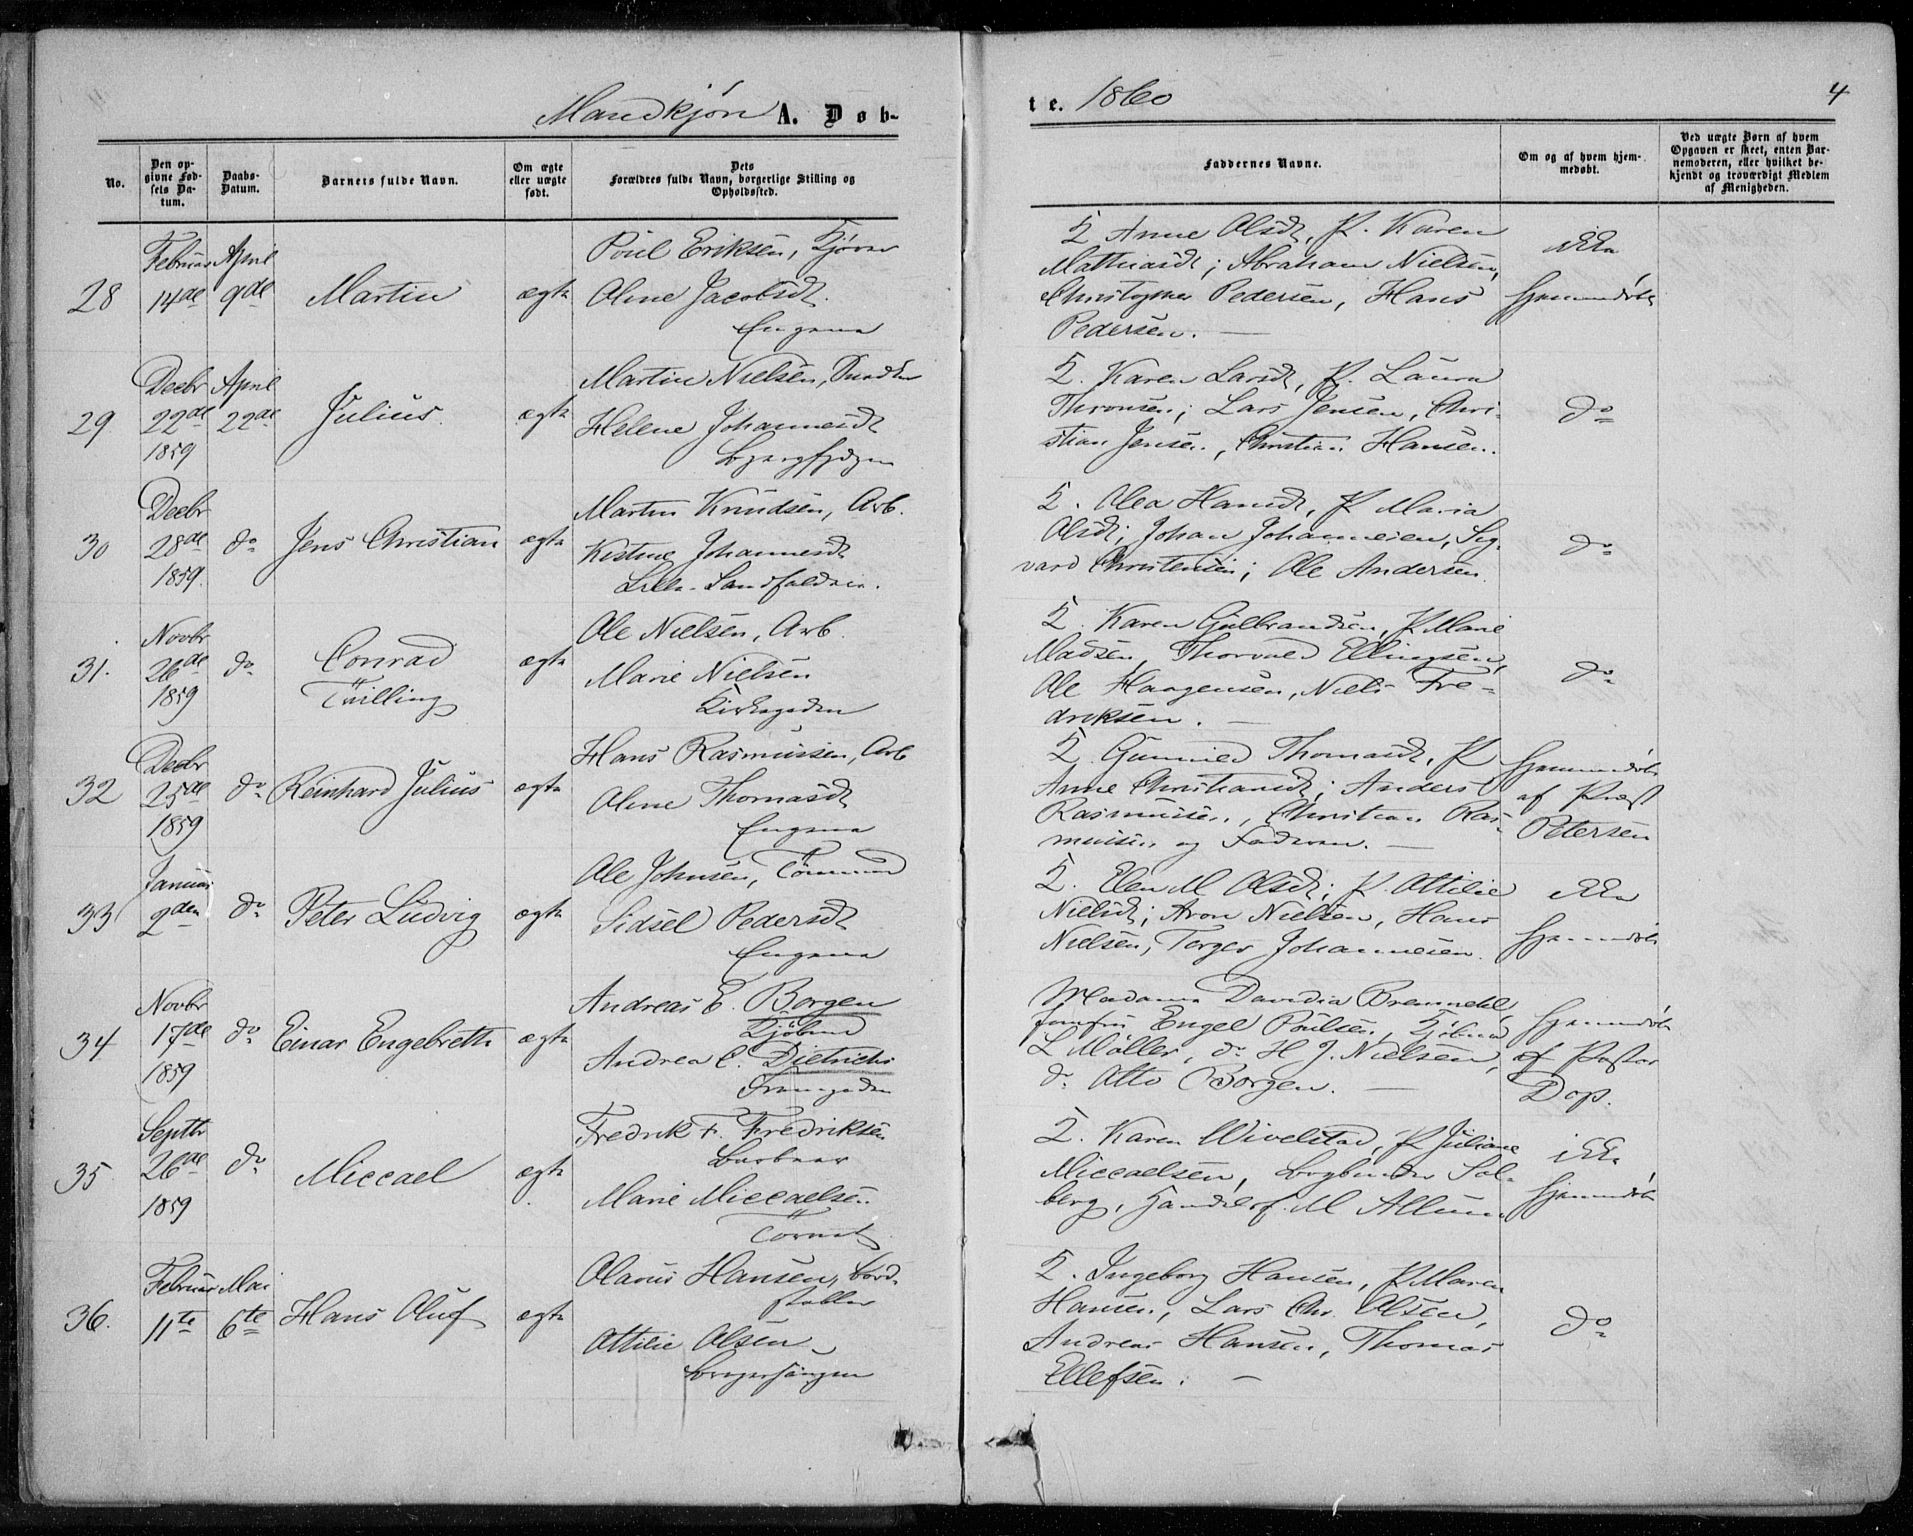 Mandkjøn A. Døb-
te. 1860
4
No.
Den op-
givne Fød-
sels Da-
tum.
Daabs-
Datum.
Barnets fulde Navn.
Om ægte
eller uægte
født.
Dets
Forældres fulde Navn, borgerlige Stilling og
Opholdssted.
Faddernes Navne.
Om og af hvem hjem-
medøbt.
Ved uægte Børn af hvem
Opgaven er skeet, enten Bar-
nemoderen, eller hvilket be-
kjendt og troværdigt Medlem
af Menigheden.
28
Februar
14de
April
9de
Martin
ægte
Poul Eriksen,
Oline Jacobsdt.
Engene
Q Anne Olsdt, P. Karen
Mathiasdt; Abraham Nielsen,
Christopher Pedersen, Hans
Pedersen. —
ikke
hjemmedøbt
29
Decbr
22de
1859
April
22de
Julius.
ægte
Martin Nielsen, Snedker
Helene Johannesdt
Q. Karen Larsdt, P. Laura
Thronsen; Lars Jensen, Chri-
stian Jensen, Christian Hansen.
do
30
Decbr
28de
1859.
do
Jens Christian
ægte
Martin Knudsen, Arb.
Kistine Johannesdt
Q. Olea Hansdt, P Maria
Olsdt; Johan Johannesen, Sig-
vard Christensen; Ole Andersen.
do
31.
Novbr
26de
1859
do
Conrad
Tvilling
ægte
Ole Nielsen, Arb.
Marie Nielsen
Kirkegaden
Q. Karen Gulbrandsen, P Marie
Madsen, Thorvald Ellingsen,
Ole Haagensen, Niels Fre-
driksen. —
do
32
Decbr
25de
1859
do
Reinhard Julius
ægte
Hans Rasmussen, Arb
Oline Thomasdt
Engene
Q. Gunnild Thomasdt, P
Anne Christiansdt; Anders
Rasmussen, Christian Ras-
mussen og Faderen. —
hjemmedøbt
af Præst
Petersen
33
Januar
2den
do
Peter Ludvig
ægte
Ole Johnsen, Tömmermd
Sidsel Pedersdt
Engene
Q. Elen M Olsdt; P. Ottilie
Nielsdt; Aron Nielsen, Hans
Nielsen, Torger Johannesen.
ikke
hjemmedøbt
34
Novbr
17de
1859
do
Einar Engebreth
ægte
Andreas E. Borgen
Kjøbmd
Andrea C. Dietrichs
Madame Davidia Bremndel,
Jomfru Engel Poulsen, Kjøbmd
L Møller, do H J. Nielsen,
do Otto Borgen. —
hjemmedøbt
af Pastor
Dop.
35
Septbr
26de
1859
do
Miccael
ægte
Fredrik F. Fredriksen
Marie Miccaelsen.
Törnet
Q. Karen Wivelstad, P Juliane
Miccaelsen, Bogbinder Sol-
berg, Handelsf. M Allum
ikke
hjemmedøbt
36.
Februar
11te
Mai
6te
Hans Oluf
ægte
Olavus Hansen, Bord-
stabler
Ottilie Olsen
Q. Ingeborg Hansen, P Maren
Hansen, Lars Chr. Olsen,
Andreas Hansen, Thomas
Ellefsen. —
do